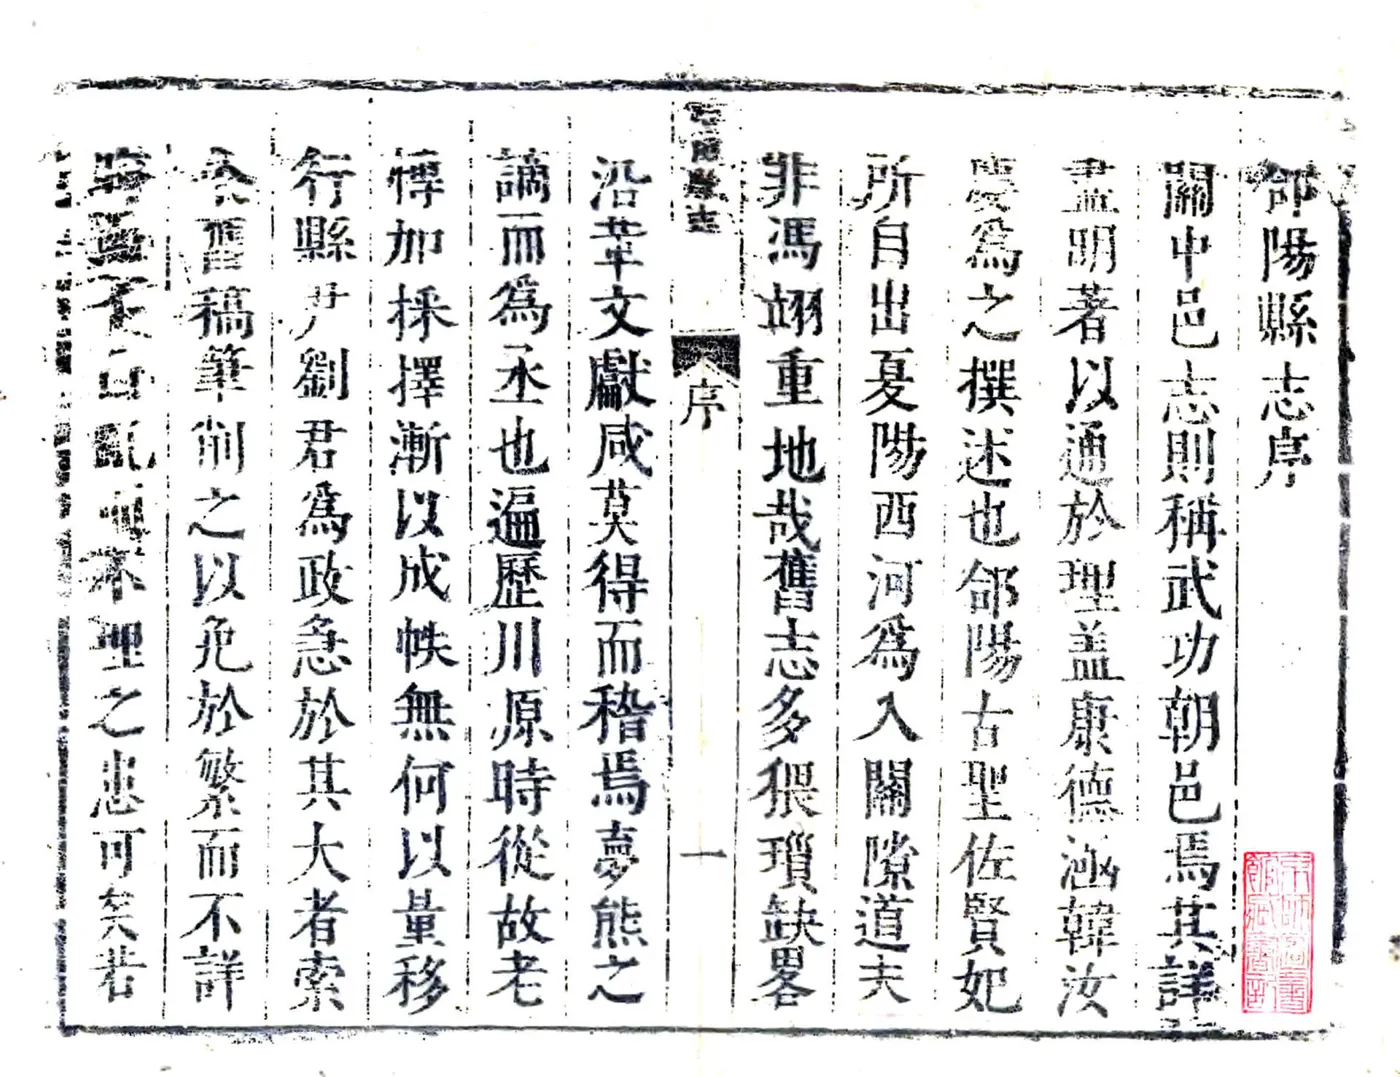 郃陽縣志序
關中邑志則稱武功朝邑焉其詳
盡明著以通於理盖康德涵韓汝
慶爲之撰述也郃陽古聖佐賢妃
所自出戞陽西河爲入關隙道夫
非馮翊重地哉舊志多猥瑣缺畧
縣志
序
一
沿革文獻咸莫得而稽焉夢熊之
謫而爲丞也遍歷川原時從故老
博加採擇漸以成帙無何以量移
行縣尹劉君爲政急於其大者索
余舊稿筆削之以免於繁而不詳
不理之患可矣若